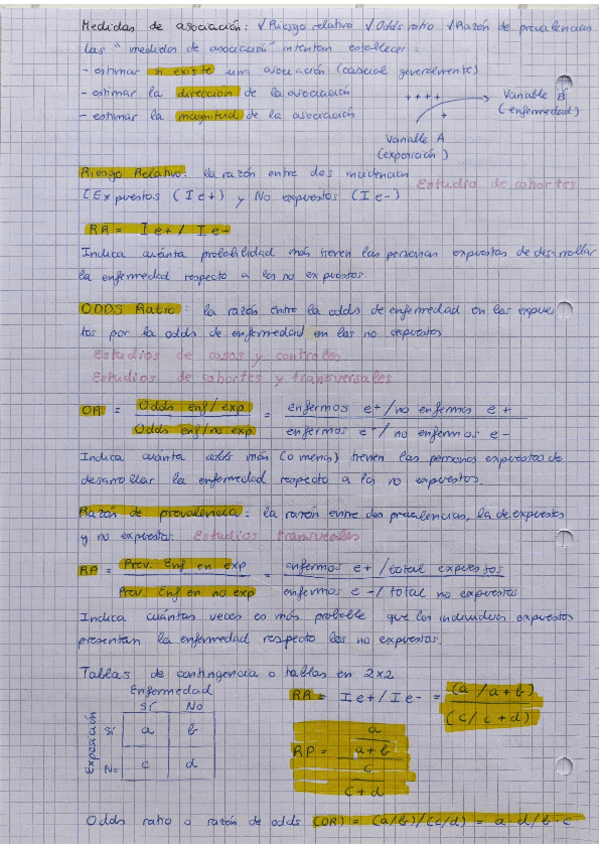 Medidas de asociación: √Riesgo relativo √Odds ratio √Razón de prevalencias
Las "medidas de asociación" intentan establecer:
- estimar si existe una asociación (casual generalmente)
- estimar la dirección de la asociación
- estimar la magnitud de la asociación
++++
+
Variable B
(enfermedad)
Variable A
(exposición)
Riesgo Relativo: la razón entre dos incidencias
(Expuestos (Ie+) y No expuestos (Ie-)
Estudio de cohortes
RR = Ie+ / Ie-
Indica cuánta probabilidad más tienen las personas expuestas de desarrollar
la enfermedad respecto a los no expuestos.
ODDS Ratio: la razón entre la odds de enfermedad en los expues
tos por la odds de enfermedad en los no expuestos
Estudios de casos y controles
Estudios de cohortes y transversales
OR = Odds enf/exp = enfermos e+/no enfermos e+
Odds enf/no exp enfermos e-/ no enfermos e-
Indica cuánta odds más (o menos) tienen las personas expuestas de
desarrollar la enfermedad respecto a los no expuestos.
Razón de prevalencia: la razón entre dos prevalencias, la de expuestos
y no expuestos. Estudios
RP = Prev. Enf en exp = enfermos e+/total expuestos
Prev. Enf en no exp enfermos e-/ total no expuestos
Indica cuántas veces es más probable que los individuos expuestos
presentan la enfermedad respecto los no expuestos.
Tablas de contingencia o tablas en 2x2
Enfermedad
Sí No
Exposición
Sí a b
No c d
RR = Ie+ / Ie- = (a / a+b)
(c / c+d)
RP = a
a+b
c
c+d
Odds ratio o razón de odds (OR) = (a/b)/(c/d) = a·d/b·c